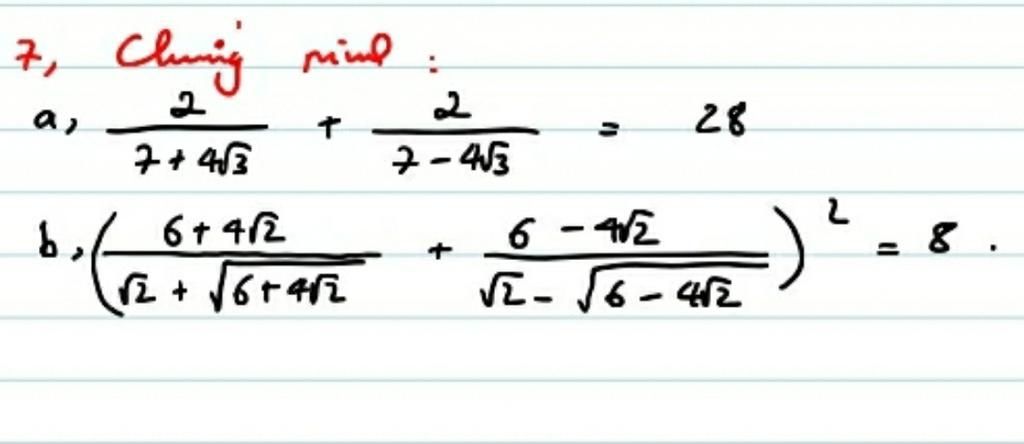 7, Chứng minh :
a, 2/(7 + 4√3) + 2/(7 - 4√3) = 28
b, ((6 + 4√2)/(√2 + √(6 + 4√2)) + (6 - 4√2)/(√2 - √(6 - 4√2)))² = 8 .